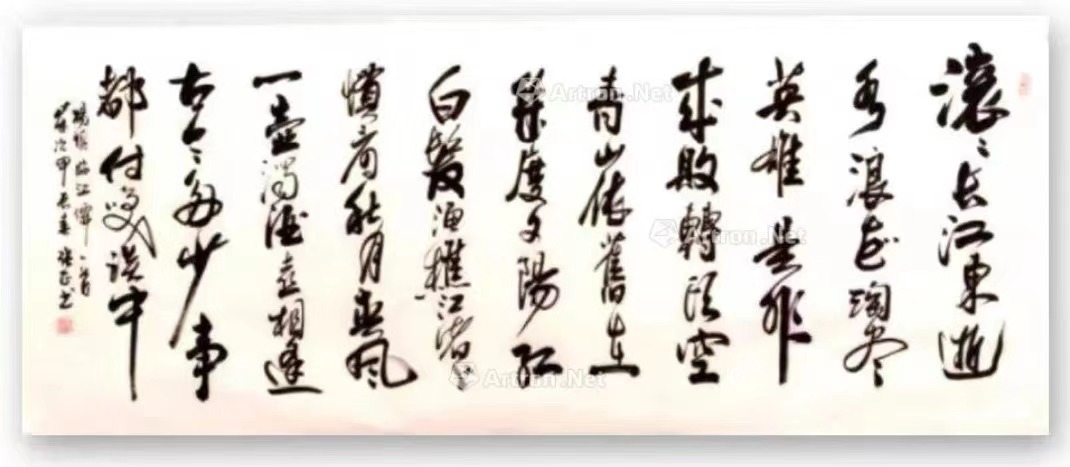 滚〻长江東逝
水浪花淘尽
英雄是非
成敗轉头空
青山依舊在
幾度夕陽红
白髮渔樵江渚上
慣看秋月春風
一壺濁酒喜相逢
古今多少事
都付笑谈中
楊慎臨江仙一首
歲次甲辰春 书
Artron.Net
Artron.Net
Artron.Net